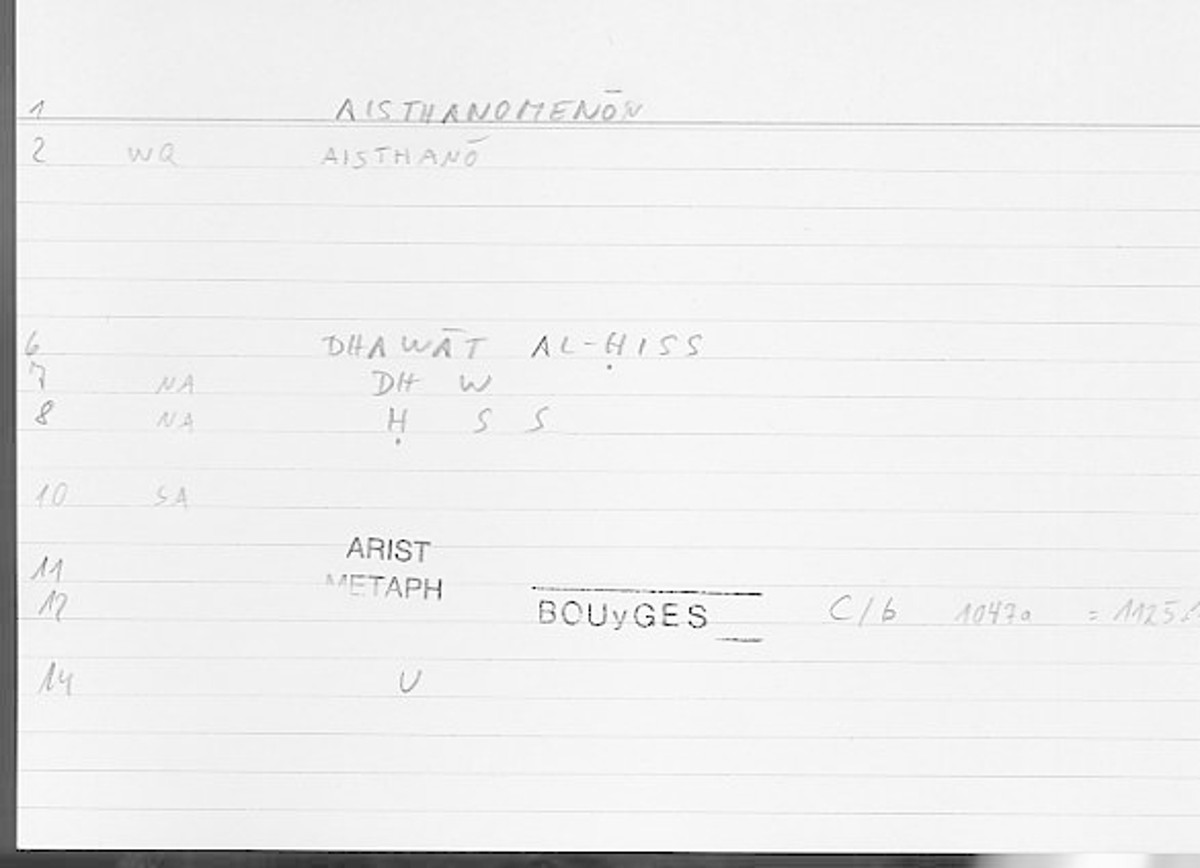 1 AISTHANOMENŌN
2 WQ AISTHANŌ
6 DHAWĀT AL-ḤISS
7 NA DH W
8 NA Ḥ S S
10 SA
ARIST
11
METAPH
12 BOUyGES C/b 1047a =
14 U